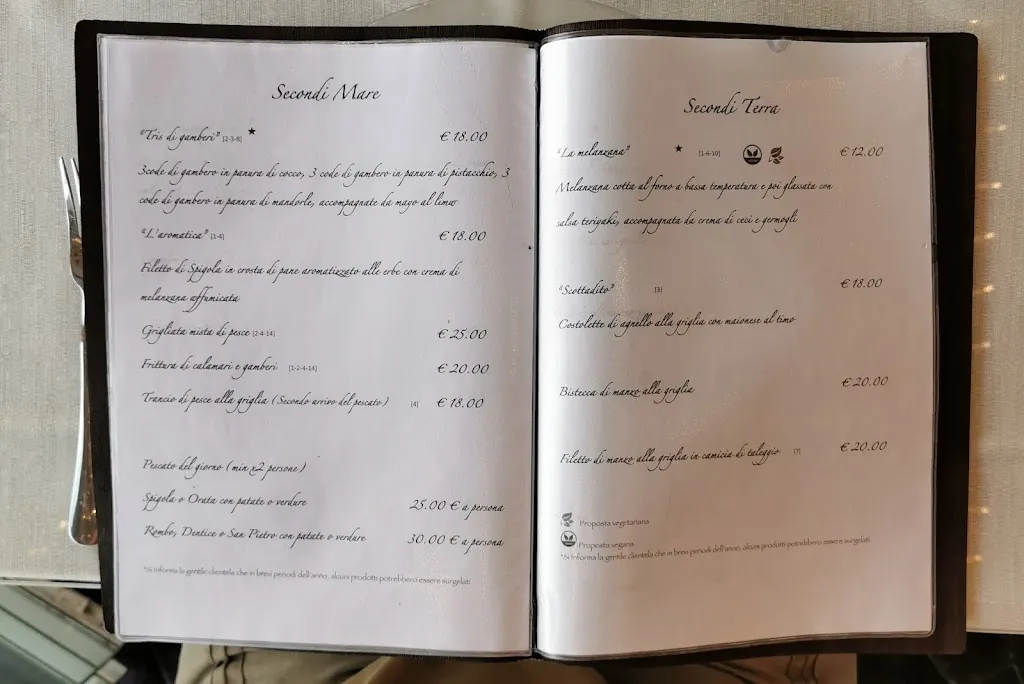 Secondi Mare
"Tris di gamberi" [2-3-8] ★ € 18.00
3code di gambero in panura di cocco, 3 code di gambero in panura di pistacchio, 3
code di gambero in panura di mandorle, accompagnate da mayo al lime
"L'aromatica" [1-4] € 18.00
Filetto di Spigola in crosta di pane aromatizzato alle erbe con crema di
melanzana affumicata
Grigliata mista di pesce [2-4-14] € 25.00
Frittura di calamari e gamberi [1-2-4-14] € 20.00
Trancio di pesce alla griglia (Secondo arrivo del pescato) [4] € 18.00
Pescato del giorno (min x2 persone)
Spigola o Orata con patate o verdure 25.00 € a persona
Rombo, Dentice o San Pietro con patate o verdure 30.00 € a persona
*Si Informa la gentile clientela che in brevi periodi dell'anno, alcuni prodotti potrebbero essere surgelati
Secondi Terra
"La melanzana" ★ [1-6-10] € 12.00
Melanzana cotta al forno a bassa temperatura e poi glassata con
salsa teriyaki, accompagnata da crema di ceci e germogli
"Scottadito" [3] € 18.00
Costolette di agnello alla griglia con maionese al timo
Bistecca di manzo alla griglia € 20.00
Filetto di manzo alla griglia in camicia di taleggio [7] € 20.00
Proposta vegetariana
Proposta vegana
*Si Informa la gentile clientela che in brevi periodi dell'anno, alcuni prodotti potrebbero essere surgelati